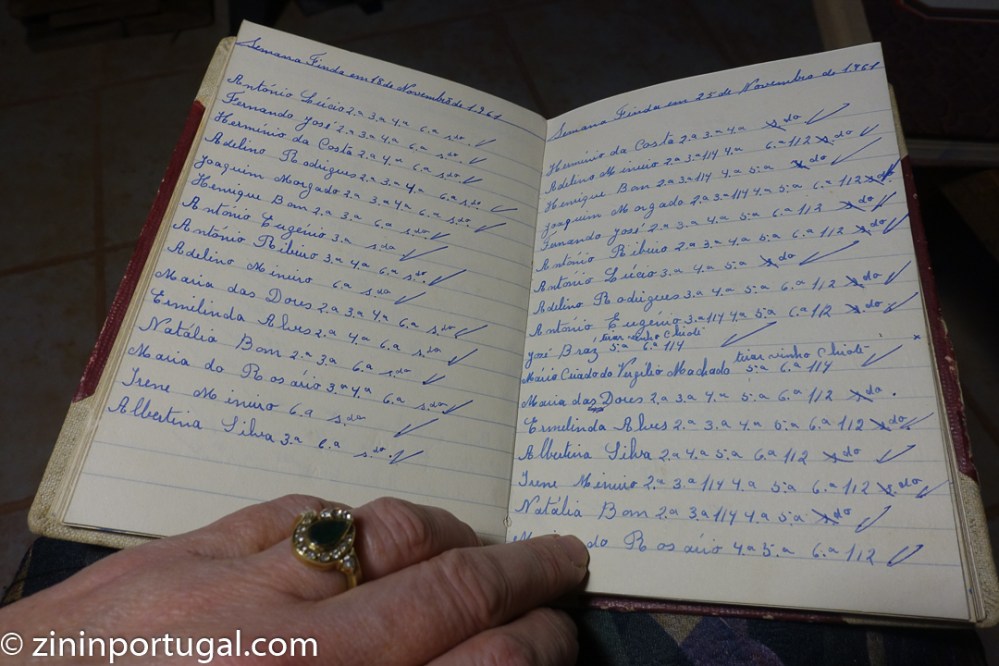 Semana Finda em 18 de Novembro de 1.961
António Lúcio 2.a 3.a 4.a 6.a s.do
Fernando José 2.a 3.a 4.a 6.a s.do
Herminio da Costa 2.a 4.a 6.a s.do
Adelino Rodrigues 2.a 3.a 4.a 6.a s.do
Joaquim Morgado 2.a 3.a 4.a 6.a s.do
Henrique Bom 2.a 3.a 6.a s.do
António Eugénio 3.a s.do
António Ribeiro 3.a 4.a 6.a s.do
Adelino Mineiro 6.a s.do
Maria das Dores 2.a 3.a 4.a 6.a s.do
Ermilinda Alves 2.a 4.a 6.a s.do
Natália Bom 2.a 3.a 6.a s.do
Maria do Rosário 3.a 4.a 6.a s.do
Irene Mineiro 6.a s.do
Albertina Silva 3.a 6.a s.do
Semana Finda em 25 de Novembro de 1.961
Herminio da Costa 2.a 3.a 4.a s.do
Adelino Mineiro 2.a 3.a 1/4 4.a 6.a 1/2 s.do
Henrique Bom 2.a 3.a 1/4 4.a 5.a s.do
Joaquim Morgado 2.a 3.a 1/4 4.a 5.a 6.a 1/2 s.do
Fernando José 2.a 3.a 4.a 5.a 6.a 1/2 s.do
António Ribeiro 2.a 3.a 4.a 5.a 6.a 1/2 s.do
António Lúcio 3.a 4.a 5.a s.do
Adelino Rodrigues 3.a 4.a 5.a 6.a 1/2 s.do
António Eugénio 3.a 1/4 4.a 5.a 6.a 1/2 s.do
tirar vinho Chioti
José Braz 5.a 6.a 1/4
Mário Criado do Virgilio Machado tirar vinho Chioti 5.a 6.a 1/4
Maria das Dores 2.a 3.a 4.a 5.a 6.a 1/2 s.do
Ermelinda Alves 2.a 3.a 4.a 5.a 6.a 1/2 s.do
Albertina Silva 2.a 4.a 5.a 6.a 1/2 s.do
Irene Mineiro 2.a 3.a 1/4 4.a 5.a 6.a 1/2 s.do
Natália Bom 2.a 3.a 1/4 4.a 5.a s.do
do Rosário 4.a 5.a 6.a 1/2
© zininportugal.com